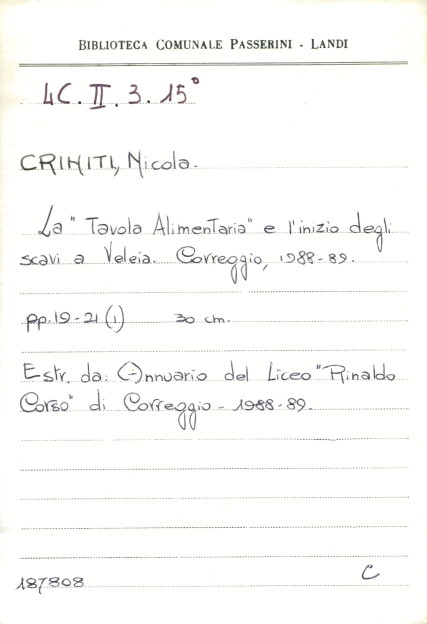 BIBLIOTECA COMUNALE PASSERINI - LANDI
4C. II. 3. 15°
CRINITI, Nicola.
La "Tavola Alimentaria" e l'inizio degli
scavi a Veleia. Correggio, 1988-89.
pp. 19-21 (1) 30 cm.
Estr. da: Annuario del Liceo "Rinaldo
Corso" di Correggio - 1988-89.
187808 C